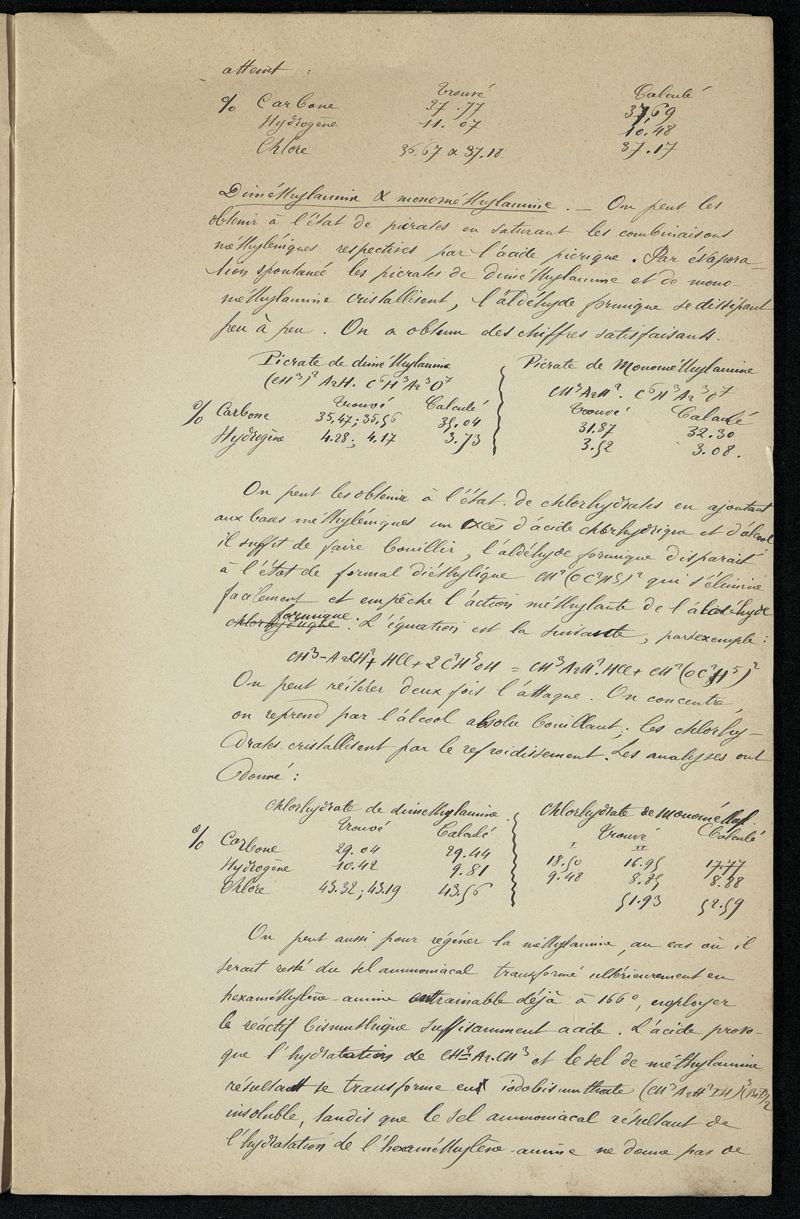 atteint :
Trouvé Calculé
% Carbone 37.77 37,69
Hydrogène 11.07 10.48
Chlore 36.67 & 37.18 37.17
Diméthylamine & monométhylamine. — On peut les
obtenir à l'état de picrates en saturant les combinaisons
méthyléniques respectives par l'acide picrique. Par évapora-
tion spontanée les picrates de diméthylamine et de mono-
méthylamine cristallisent, l'aldéhyde formique se dissipant
peu à peu. On a obtenu des chiffres satisfaisants.
Picrate de diméthylamine Picrate de Monométhylamine
(CH³)² AzH. C⁶H³Az³O⁷ CH³AzH². C⁶H³Az³O⁷
Trouvé Calculé Trouvé Calculé
% Carbone 35,47; 35,56 35.04 31.87 32.30
Hydrogène 4.28; 4.17 3.73 3.52 3.08.
On peut les obtenir à l'état de chlorhydrates en ajoutant
aux bases méthyléniques un excès d'acide chlorhydrique et d'alcool
il suffit de faire bouillir, l'aldéhyde formique disparait
à l'état de formal diéthylique CH²(OC²H⁵)² qui s'élimine
facilement et empêche l'action méthylante de l'aldéhyde
chlorhydrique formique. L'équation est la suivante, par exemple :
CH³-AzCH²+ HCl + 2C²H⁵OH = CH³AzH².HCl + CH²(OC²H⁵)²
On peut réitérer deux fois l'attaque. On concentre,
on reprend par l'alcool absolu bouillant; les chlorhy-
drates cristallisent par le refroidissement. Les analyses ont
donné :
Chlorhydrate de diméthylamine. Chlorhydrate de monométhyl.
Trouvé Calculé Trouvé Calculé
I II
% Carbone 29.04 29.44 18.50 16.95 17.77
Hydrogène 10.42 9.81 9.42 8.85 8.88
Chlore 43.32; 43.19 43.56 51.93 52.59
On peut aussi pour régéner la méthylamine, au cas où il
serait resté du sel ammoniacal transformé ultérieurement en
hexaméthylène-amine entrainable déjà à 166°, employer
le réactif bismuthique suffisamment acide. L'acide provo-
que l'hydratation de CH²=Az.CH³ et le sel de méthylamine
résultant se transforme en iodobismuthate (CH³AzH²IH)³(BiI³)²
insoluble, tandis que le sel ammoniacal résultant de
l'hydratation de l'hexaméthylène-amine ne donne pas de